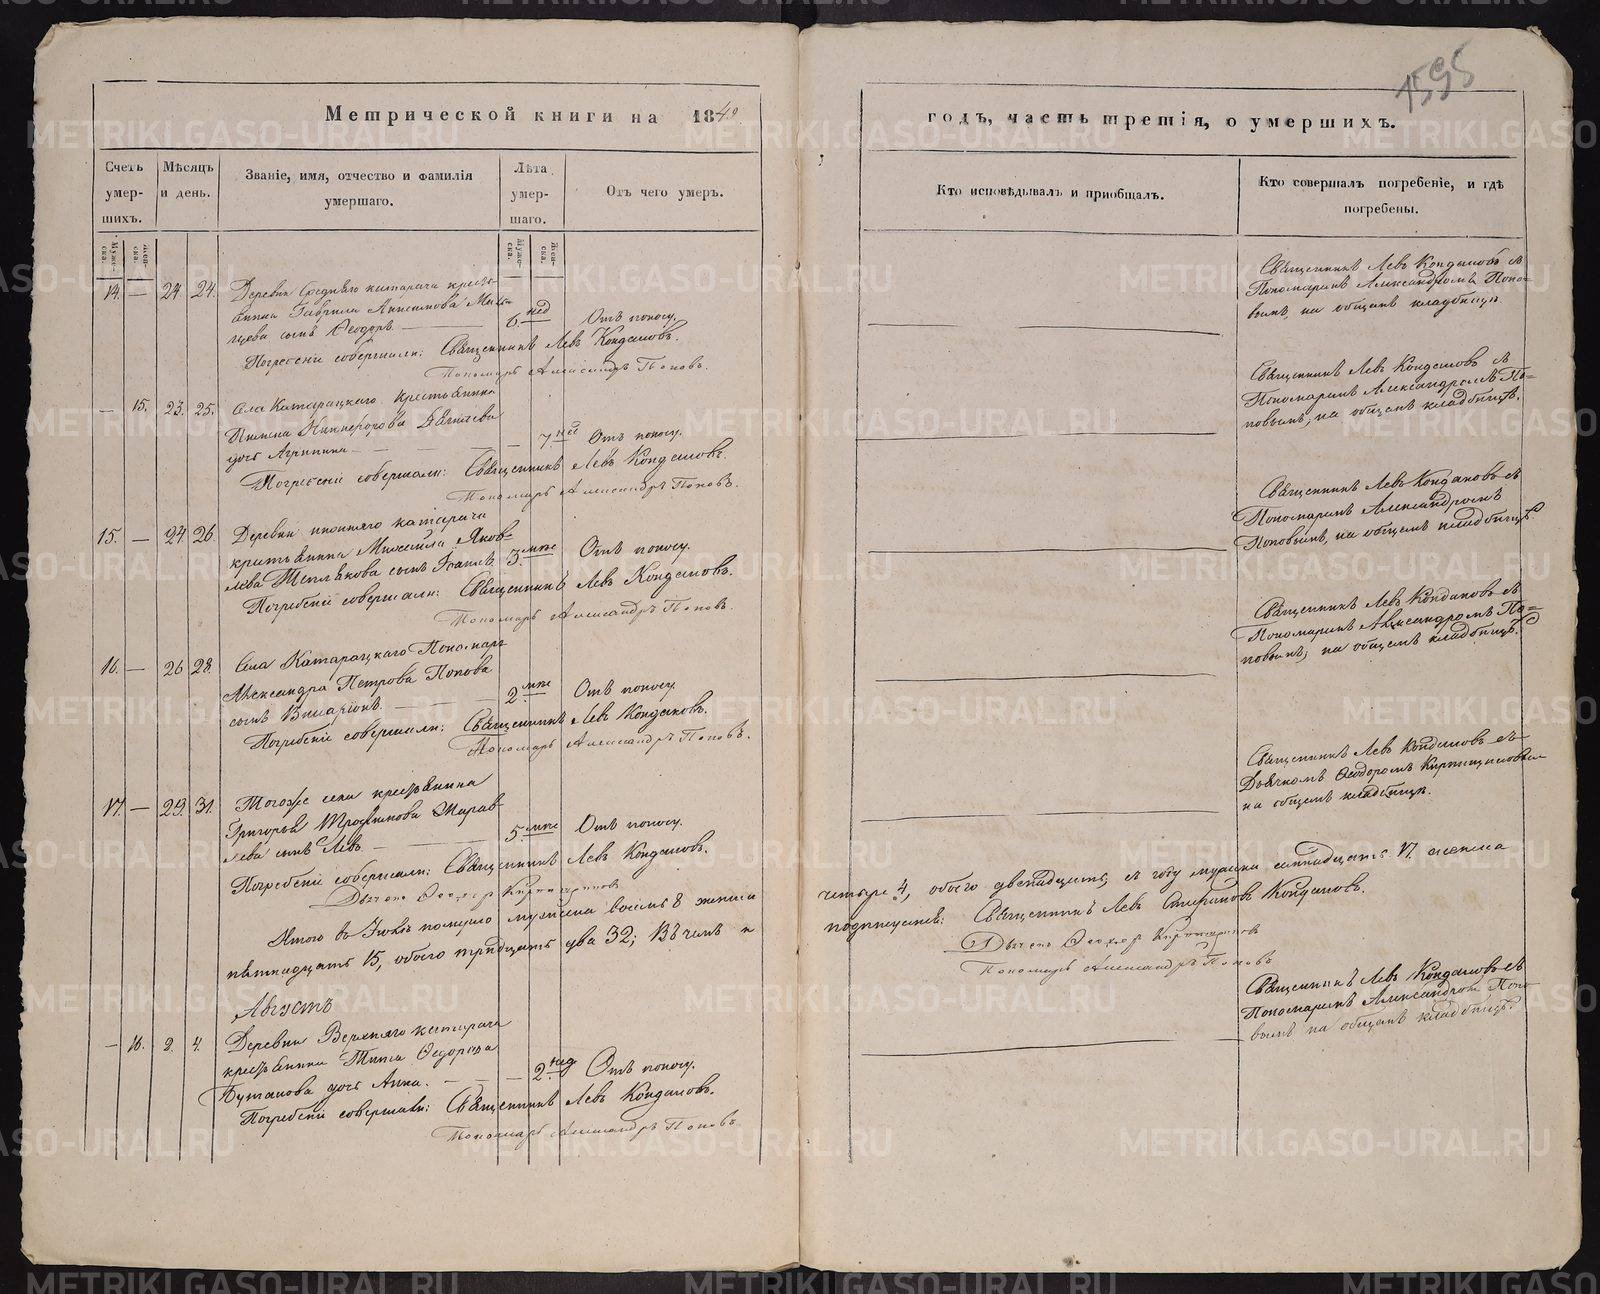 1595
Метрической книги на 1840
Счетъ умер- шихъ.
Мѣсяцъ и день.
Званіе, имя, отчество и фамилія умершаго.
Лѣта умер- шаго.
Отъ чего умеръ.
Муже- ска.
Жен- ска.
Муже- ска.
Жен- ска.
14. — 24 24. Деревни Средняго катарача кресть-
янина Гаврила Анисимова
сынъ Ѳеодоръ. — 6 нед Отъ поносу.
Погребеніе совершали: Священникъ Левъ Кондаковъ.
Пономарь Александръ Поповъ.
— 15. 23. 25. Села Катарацкаго крестьянина
Никифорова
дочь Агрипина — 7 нед Отъ поносу.
Погребеніе совершали: Священникъ Левъ Кондаковъ.
Пономарь Александръ Поповъ.
15. — 24 26. Деревни нижняго катарача
крестьянина Михаила Яков-
лева Теплякова сынъ 3. мце Отъ поносу.
Погребеніе совершали: Священникъ Левъ Кондаковъ.
Пономарь Александръ Поповъ.
16. — 26 28. Села Катарацкаго Пономаря
Александра Петрова Попова
сынъ Виссаріонъ. — 2 мце Отъ поносу.
Погребеніе совершали: Священникъ Левъ Кондаковъ.
Пономарь Александръ Поповъ.
17. — 29. 31. Тогоже села крестьянина
Григорья Трофимова Журав-
лева сынъ Левъ. — 5. мце Отъ поносу.
Погребеніе совершали: Священникъ Левъ Кондаковъ.
Дьячекъ Ѳеодоръ
Итого въ Іюлѣ померло мужеска восемь 8 женска
пятнадцать 15, обоего тридцать два 32; Въ чемъ и
Августъ
— 16. 2. 4. Деревни Верхняго катарача
крестьянина Тита Ѳедорова
Бутакова дочь Анна. — — 2. нед Отъ поносу.
Погребеніе совершали: Священникъ Левъ Кондаковъ.
Пономарь Александръ Поповъ.
годъ, часть третія, о умершихъ.
Кто исповѣдывалъ и пріобщалъ.
Кто совершалъ погребеніе, и гдѣ погребены.
Священникъ Левъ Кондаковъ съ
Пономаремъ Александромъ Попо-
вымъ, на общемъ кладбищѣ.
Священникъ Левъ Кондаковъ съ
Пономаремъ Александромъ По-
повымъ, на общемъ кладбищѣ.
Священникъ Левъ Кондаковъ съ
Пономаремъ Александромъ
Поповымъ, на общемъ кладбищѣ.
Священникъ Левъ Кондаковъ съ
Пономаремъ Александромъ По-
повымъ, на общемъ кладбищѣ.
Священникъ Левъ Кондаковъ съ
Дьячкомъ Ѳеодоромъ
на общемъ кладбищѣ.
четыре 4, обоего двенадцать, съ году мужска семнадцать 17. женска
подписуемся: Священникъ Левъ Кондаковъ.
Дьячекъ Ѳеодоръ
Пономарь Александръ Поповъ
Священникъ Левъ Кондаковъ съ
Пономаремъ Александромъ Попо-
вымъ на общемъ кладбищѣ.
METRIKI.GASO-URAL.RU